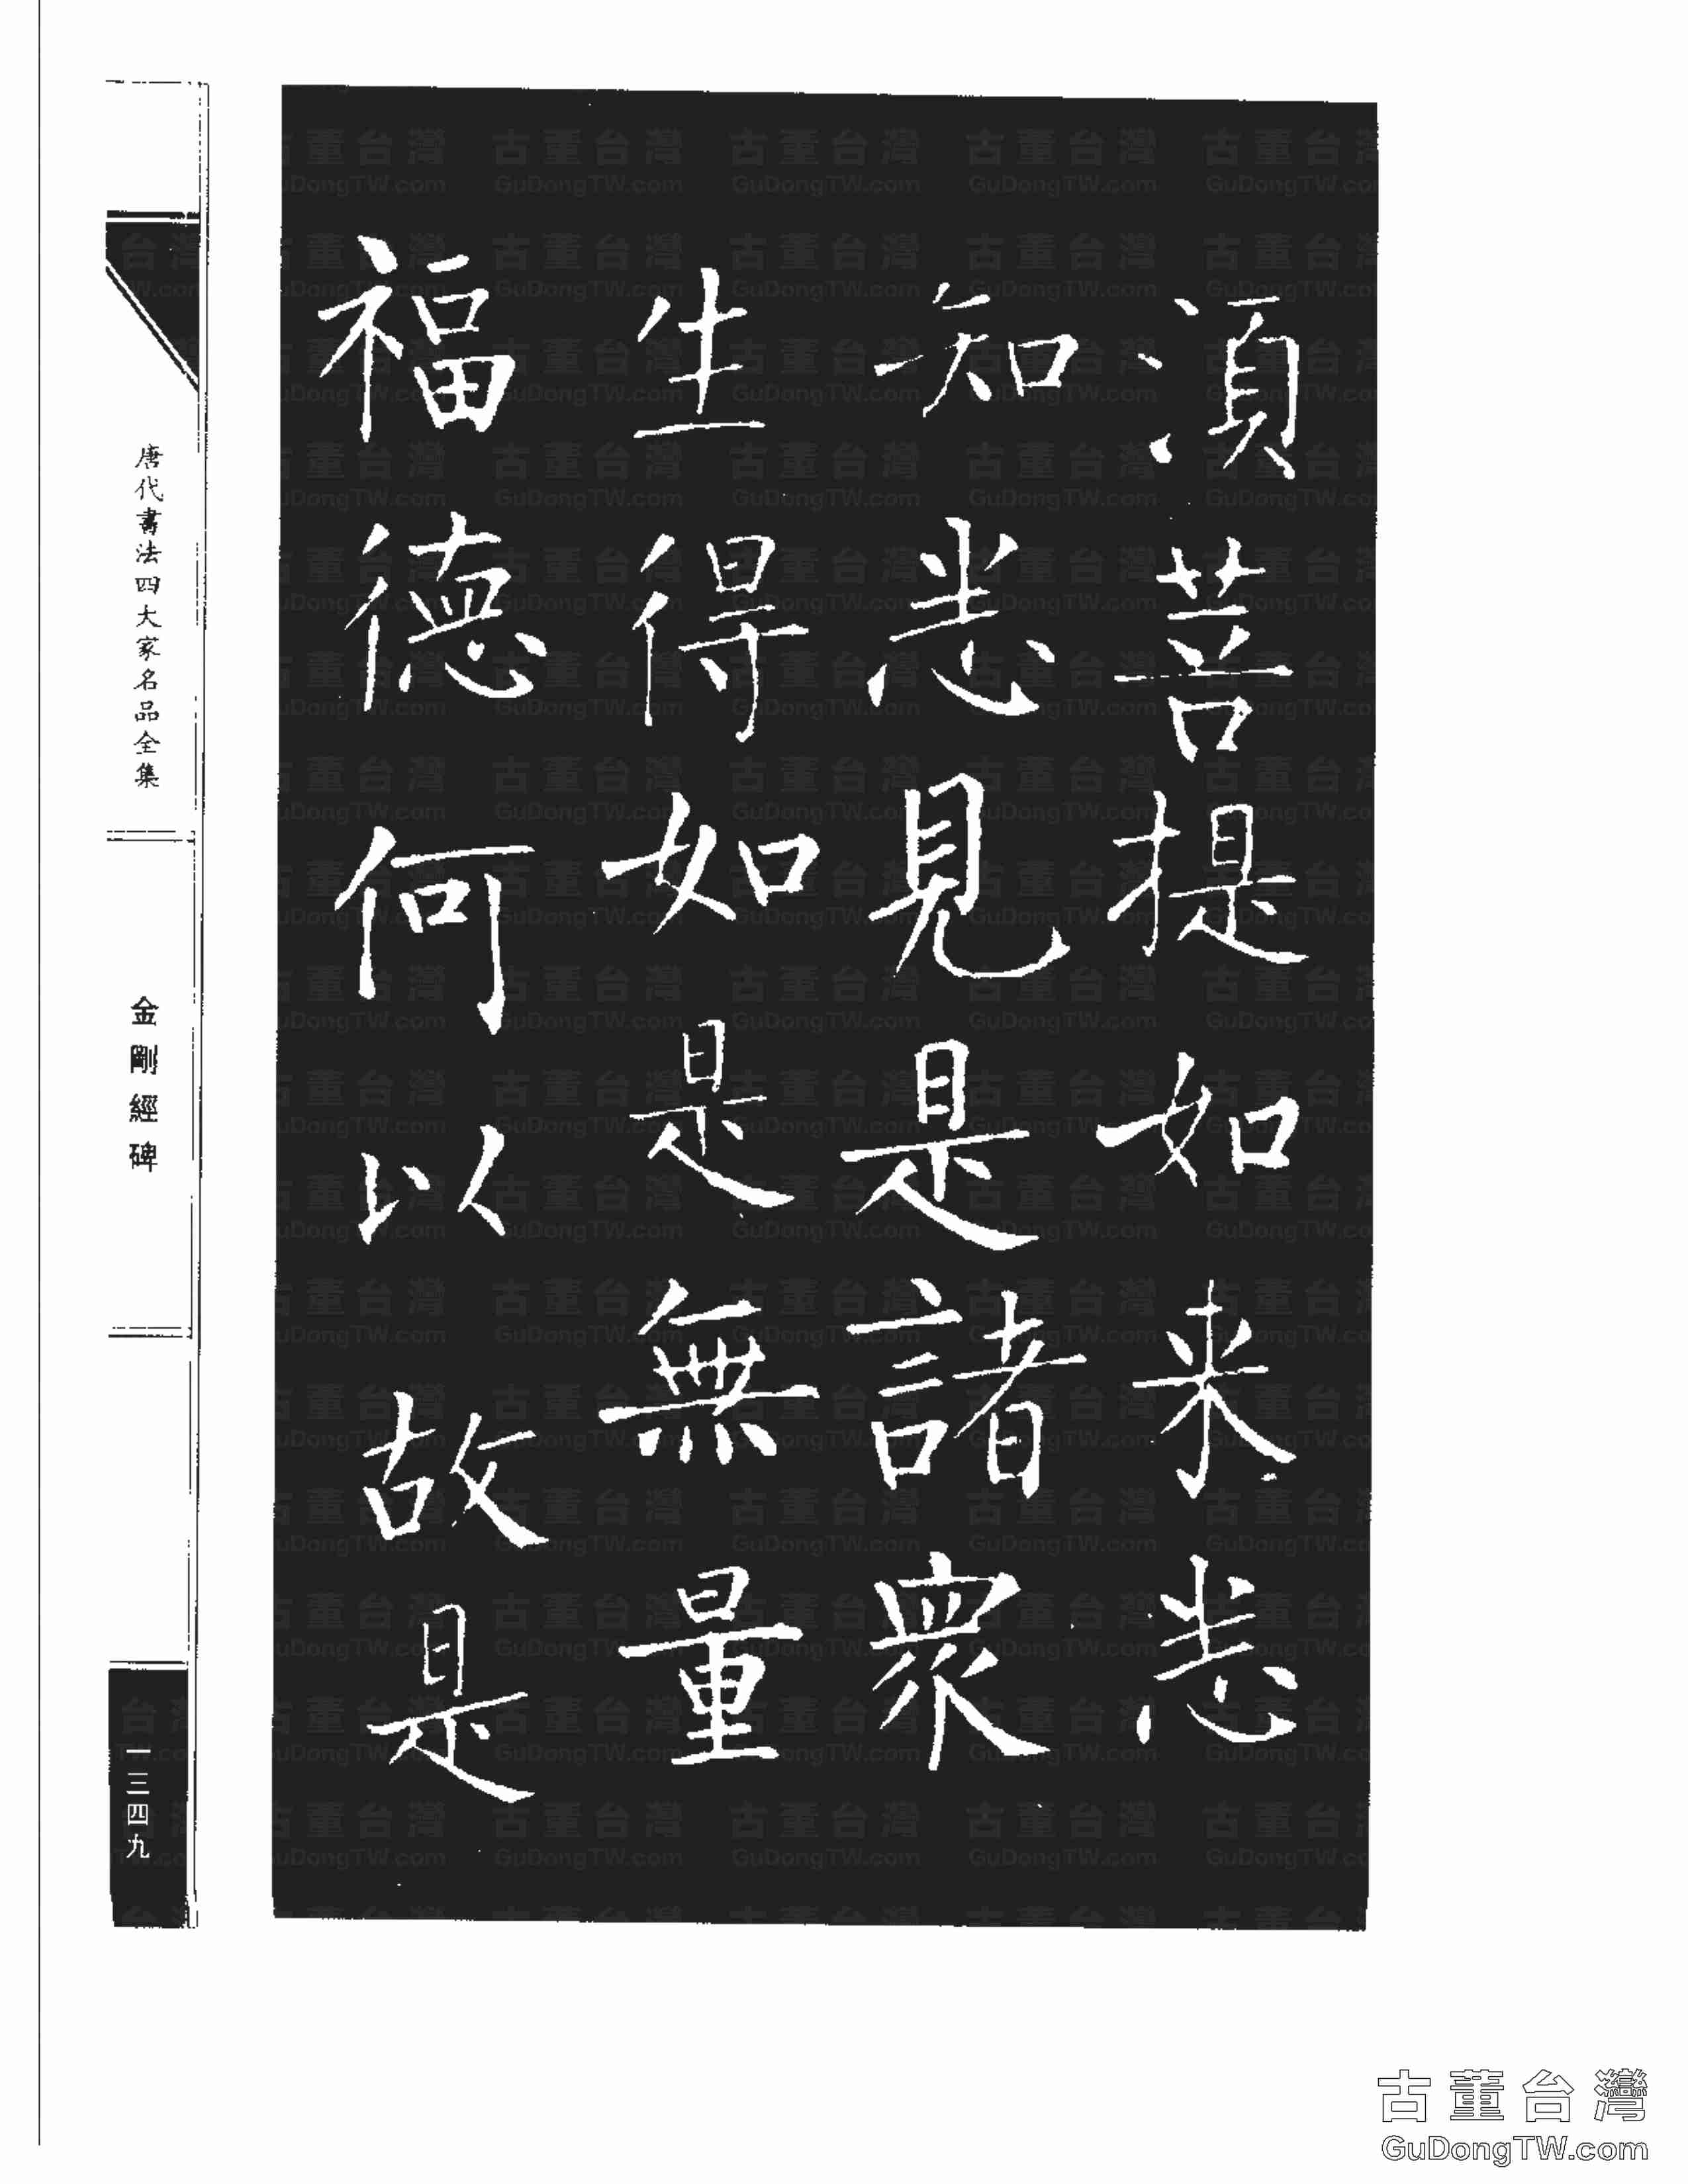 湏菩提如来悉
知悉見是諸衆
生得如是無量
福德何以故是
唐代書法四大家名品全集
金剛經碑
一三四九
古董台灣
GuDongTW.com